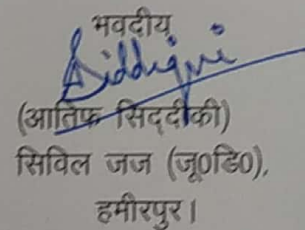 भवदीय
Siddiqui
(आतिफ सिद्दीकी)
सिविल जज (जू0डि0),
हमीरपुर।